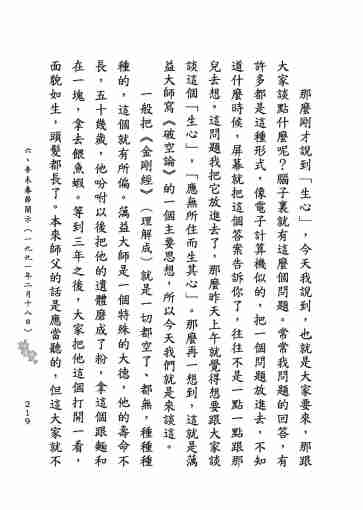 那麼剛才說到「生心」，今天我說到，也就是大家要來，那跟
大家談點什麼呢？腦子裏就有這麼個問題。常常我問題的回答，有
許多都是這種形式，像電子計算機似的，把一個問題放進去，不知
道什麼時候，屏幕就把這個答案告訴你了，往往不是一點一點跟那
兒去想，這問題我把它放進去了，那麼昨天上午就覺得想要跟大家談
談這個「生心」，「應無所住而生其心」。那麼再一想到，這就是蕅
益大師寫《破空論》的一個主要思想，所以今天我們就是來談這。
一般把《金剛經》（理解成）就是一切都空了、都無，種種種
種的，這個就有所偏。蕅益大師是一個特殊的大德，他的壽命不
長，五十幾歲，他吩咐以後把他的遺體磨成了粉，拿這個跟麵和
在一塊，拿去餵魚蝦。等到三年之後，大家把他這個打開一看，
面貌如生，頭髮都長了。本來師父的話是應當聽的，但這大家就不
六、辛未春節開示（一九九一年二月十八日）
219